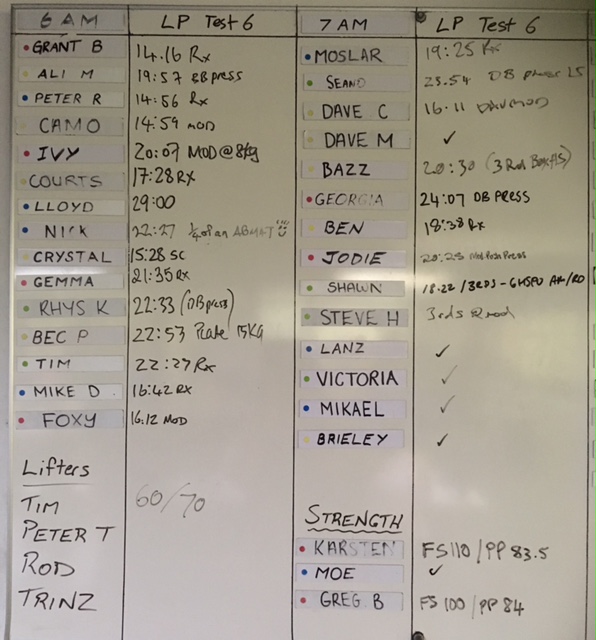 6 AM LP Test 6
GRANT B 14.16 Rx
ALI M 19:57 DB press
PETER R 14:56 Rx
CAMO 14:59 MOD
IVY 20:07 MOD @ 8kg
COURTS 17:28 RX
LLOYD 29:00
NICK 22:27 of an ABMAT
CRYSTAL 15:28 SC
GEMMA 21:35 RX
RHYS K 22:33 (DB press)
BEC P 22:53 Plate 15KG
TIM 22:27 Rx
MIKE D 16:42 RX
FOXY 16:12 MOD
Lifters
TIM 60/70
PETER T
ROD
TRINZ
7 AM LP Test 6
MOSLAR 19:25 Rx
SEANO 23.54 DB press
DAVE C 16:11 DAVMOD
DAVE M ✓
BAZZ 20:30 (3 Rd Box HS)
GEORGIA 24:07 DB PRESS
BEN 18:38 Rx
JODIE Push Press
SHAWN 18.22 /3RDS - GHSPU
STEVE H 3rds
LANZ ✓
VICTORIA ✓
MIKAEL ✓
BRIELEY ✓
STRENGTH
KARSTEN FS 110 / PP 83.5
MOE ✓
GREG B FS 100 / PP 84